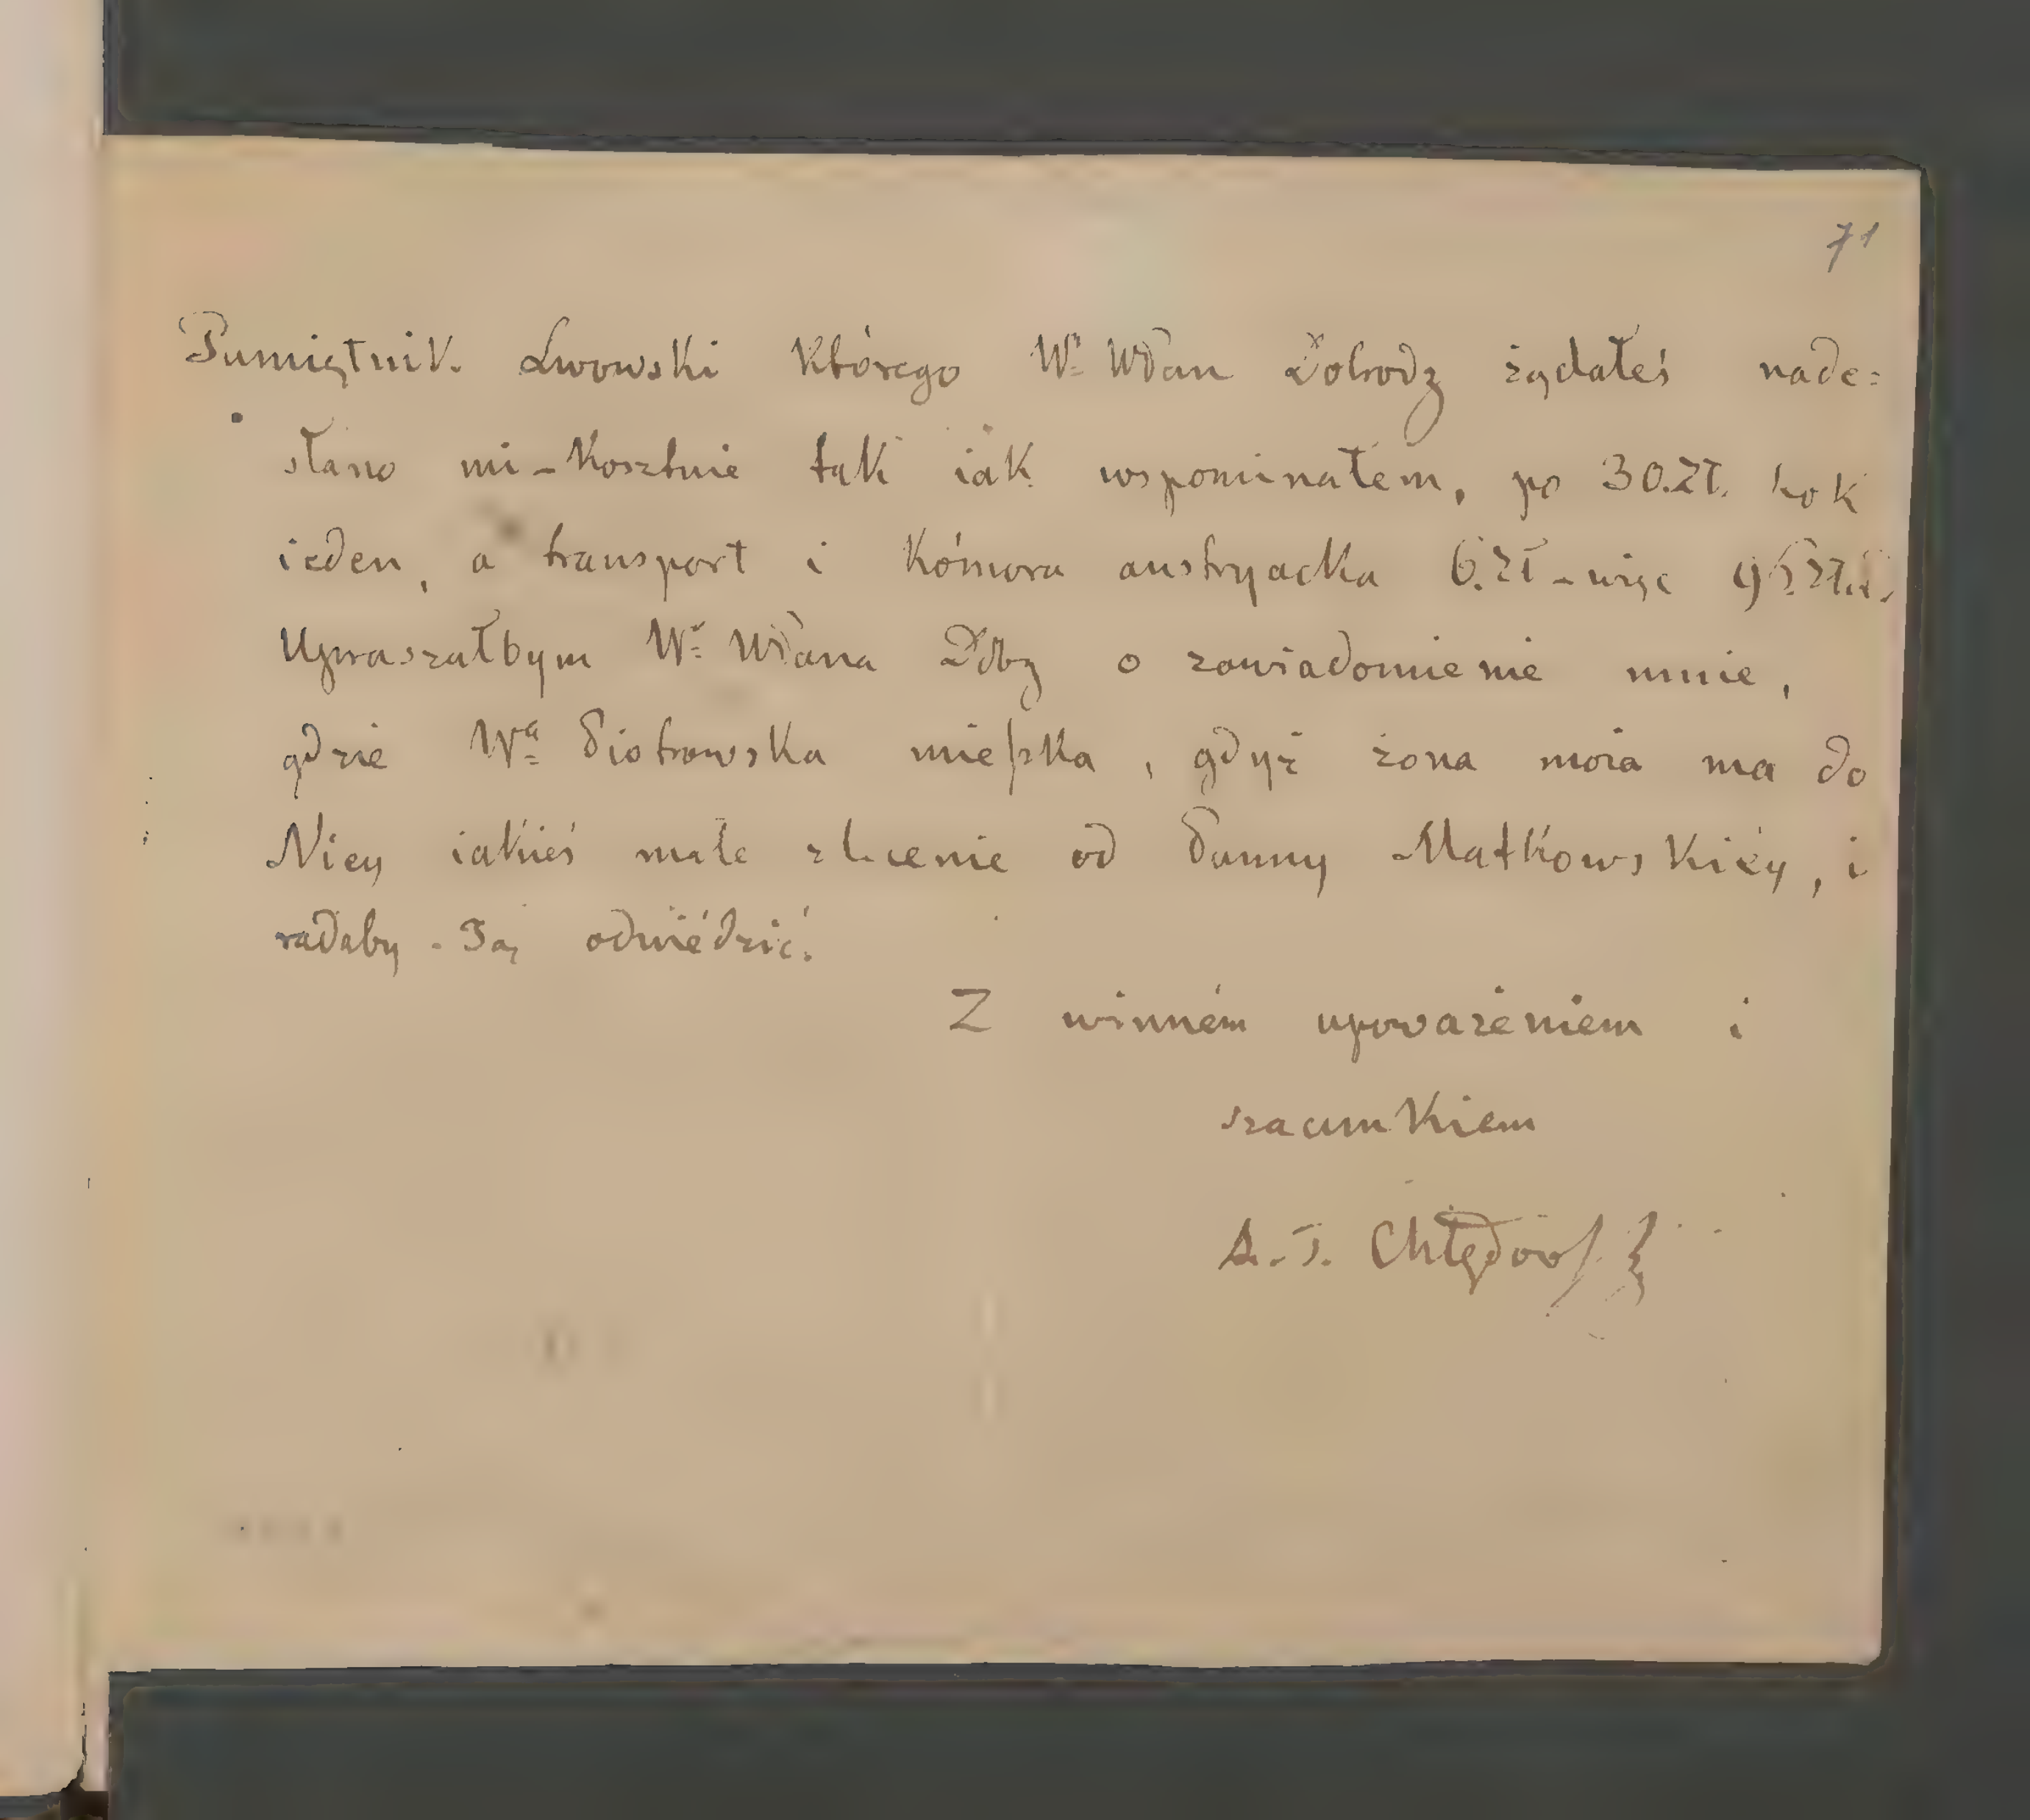 71
Pamiętnik Lwowski którego Wy WPan Dobrodz żądałeś nade=
słano mi - kosztuie tak iak wspominałem, po 30. Zł. rok
ieden, a transport i kómora austryacka 6. zł - więc
Upraszałbym WPana Dobz o zawiadomienie mnie,
gdzie Wa Piotrowska mieszka, gdyż żona moia ma do
Niey iakieś małe zlecenie od Panny Matkowskiéy, i
radaby Ją odwiédzić.
Z winném upoważeniem i
szacunkiem
A. T. Chłędowski